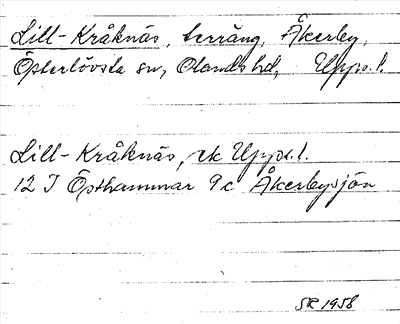 Lill-Kråknäs, terräng, Åkerby,
Österlövsta sn, Olands hd, Upps. l.
Lill-Kråknäs, ek Upps. l.
12 I Östhammar 9c Åkerbysjön
SR 1958